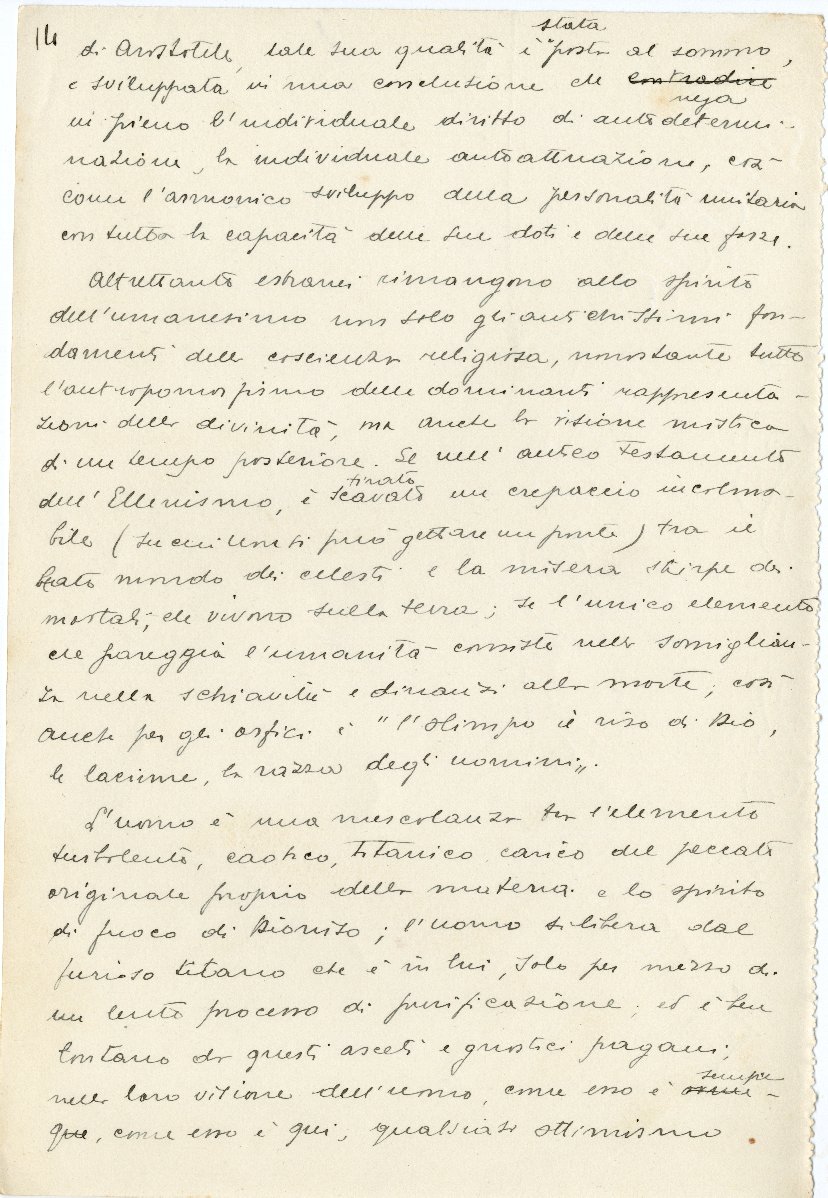 14
stata
di Aristotele, tale sua qualità è posta al sommo,
e sviluppata in una conclusione che contradice
nega
in pieno l'individuale diritto di autodetermi-
nazione, la individuale autoattuazione, così
come l'armonico sviluppo della personalità unitaria
con tutta la capacità delle sue doti e delle sue forze.
Altrettanto estranei rimangono allo spirito
dell'umanesimo non solo gli antichissimi fon-
damenti della coscienza religiosa, nonostante tutto
l'antropomorfismo delle dominanti rappresenta-
zioni della divinità, ma anche la visione mistica
di un tempo posteriore. Se nell'antico Testamento
tirato
dell'Ellenismo, è scavato un crepaccio incolma-
bile (su cui non si può gettare un ponte) tra il
beato mondo dei celesti e la misera stirpe dei
mortali, che vivono sulla terra; se l'unico elemento
che pareggia l'umanità consiste nella somiglian-
za nella schiavitù e dinanzi alla morte, così
anche per gli orfici è "l'Olimpo il riso di Dio,
le lacrime, la razza degli uomini".
L'uomo è una mescolanza tra l'elemento
turbolento, caotico, titanico, carico del peccato
originale proprio della materia e lo spirito
di fuoco di Dioniso; l'uomo si libera dal
furioso titano che è in lui, solo per mezzo di
un lento processo di purificazione; ed è ben
lontano da questi asceti e gnostici pagani,
sempre
nella loro visione dell'uomo, come esso è ovun-
que, come esso è qui, qualsiasi ottimismo